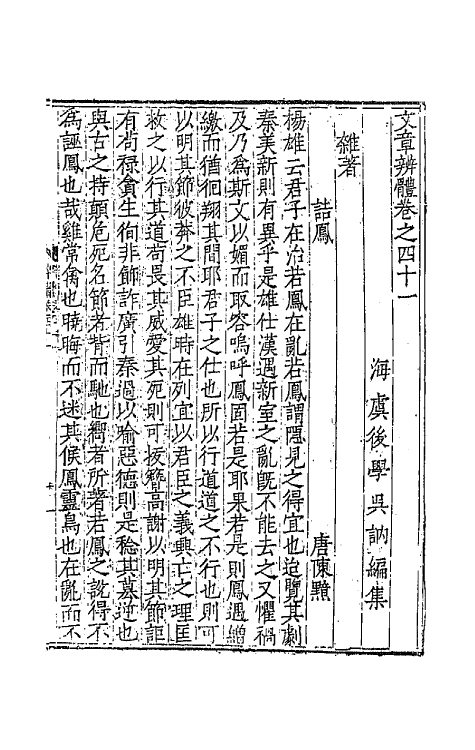 文章辨體卷之四十一
海虞後學吳訥編集
雜著
詰鳳
唐陳黯
楊雄云君子在治若鳳在亂若鳳謂隱見之得宜也迨覽其劇
秦美新則有異乎是雄仕漢遇新室之亂旣不能去之又懼禍
及乃爲斯文以媚而取容嗚呼鳳固若是耶果若是則鳳遇繒
繳而猶徊翔其間耶君子之仕也所以行道道之不行也則可
以明其節彼莽之不臣雄時在列宜以君臣之義興亡之理匡
救之以行其道苟畏其威愛其死則可投簪高謝以明其節詎
有苟祿貪生徇非飾詐廣引秦過以喻惡德則是稔其簒逆也
與古之持顛危死名節者背而馳也嚮者所著若鳳之說得不
爲誣鳳也哉雞常禽也曉晦而不迷其候鳳靈鳥也在亂而不